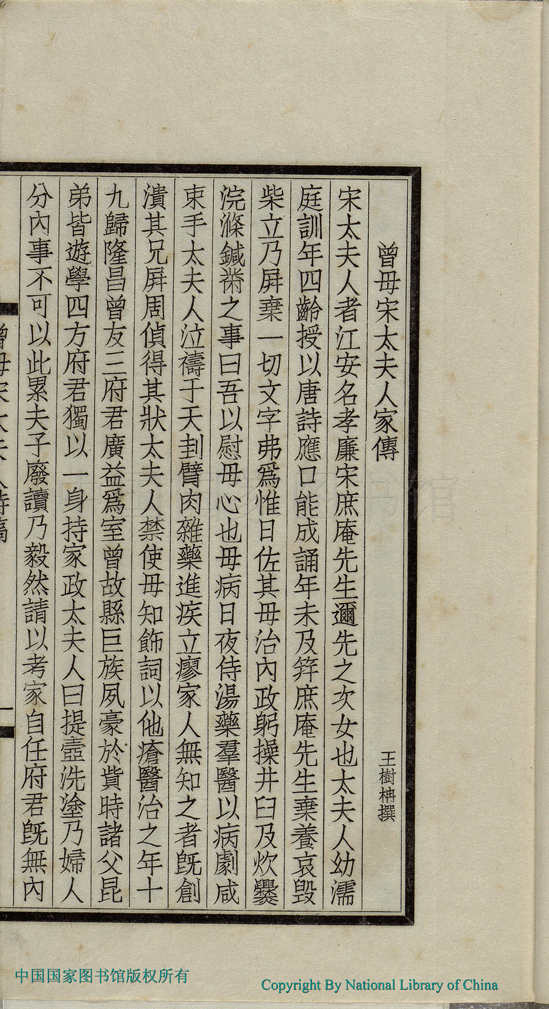 曾母宋太夫人家傳
王樹枏撰
宋太夫人者江安名孝廉宋庶庵先生邇先之次女也太夫人幼濡
庭訓年四齡授以唐詩應口能成誦年未及笄庶庵先生棄養哀毀
柴立乃屏棄一切文字弗爲惟日佐其母治內政躬操井臼及炊爨
浣滌鍼黹之事曰吾以慰母心也母病日夜侍湯藥羣醫以病劇咸
束手太夫人泣禱于天刲臂肉雜藥進疾立廖家人無知之者旣創
潰其兄屏周偵得其狀太夫人禁使母知飾詞以他瘡醫治之年十
九歸隆昌曾友三府君廣益爲室曾故縣巨族夙豪於貲時諸父昆
弟皆遊學四方府君獨以一身持家政太夫人曰提壼洗塗乃婦人
分內事不可以此累夫子廢讀乃毅然請以考家自任府君旣無內
曾母宋太夫人詩稿
一
中国国家图书馆版权所有
Copyright By National Library of China